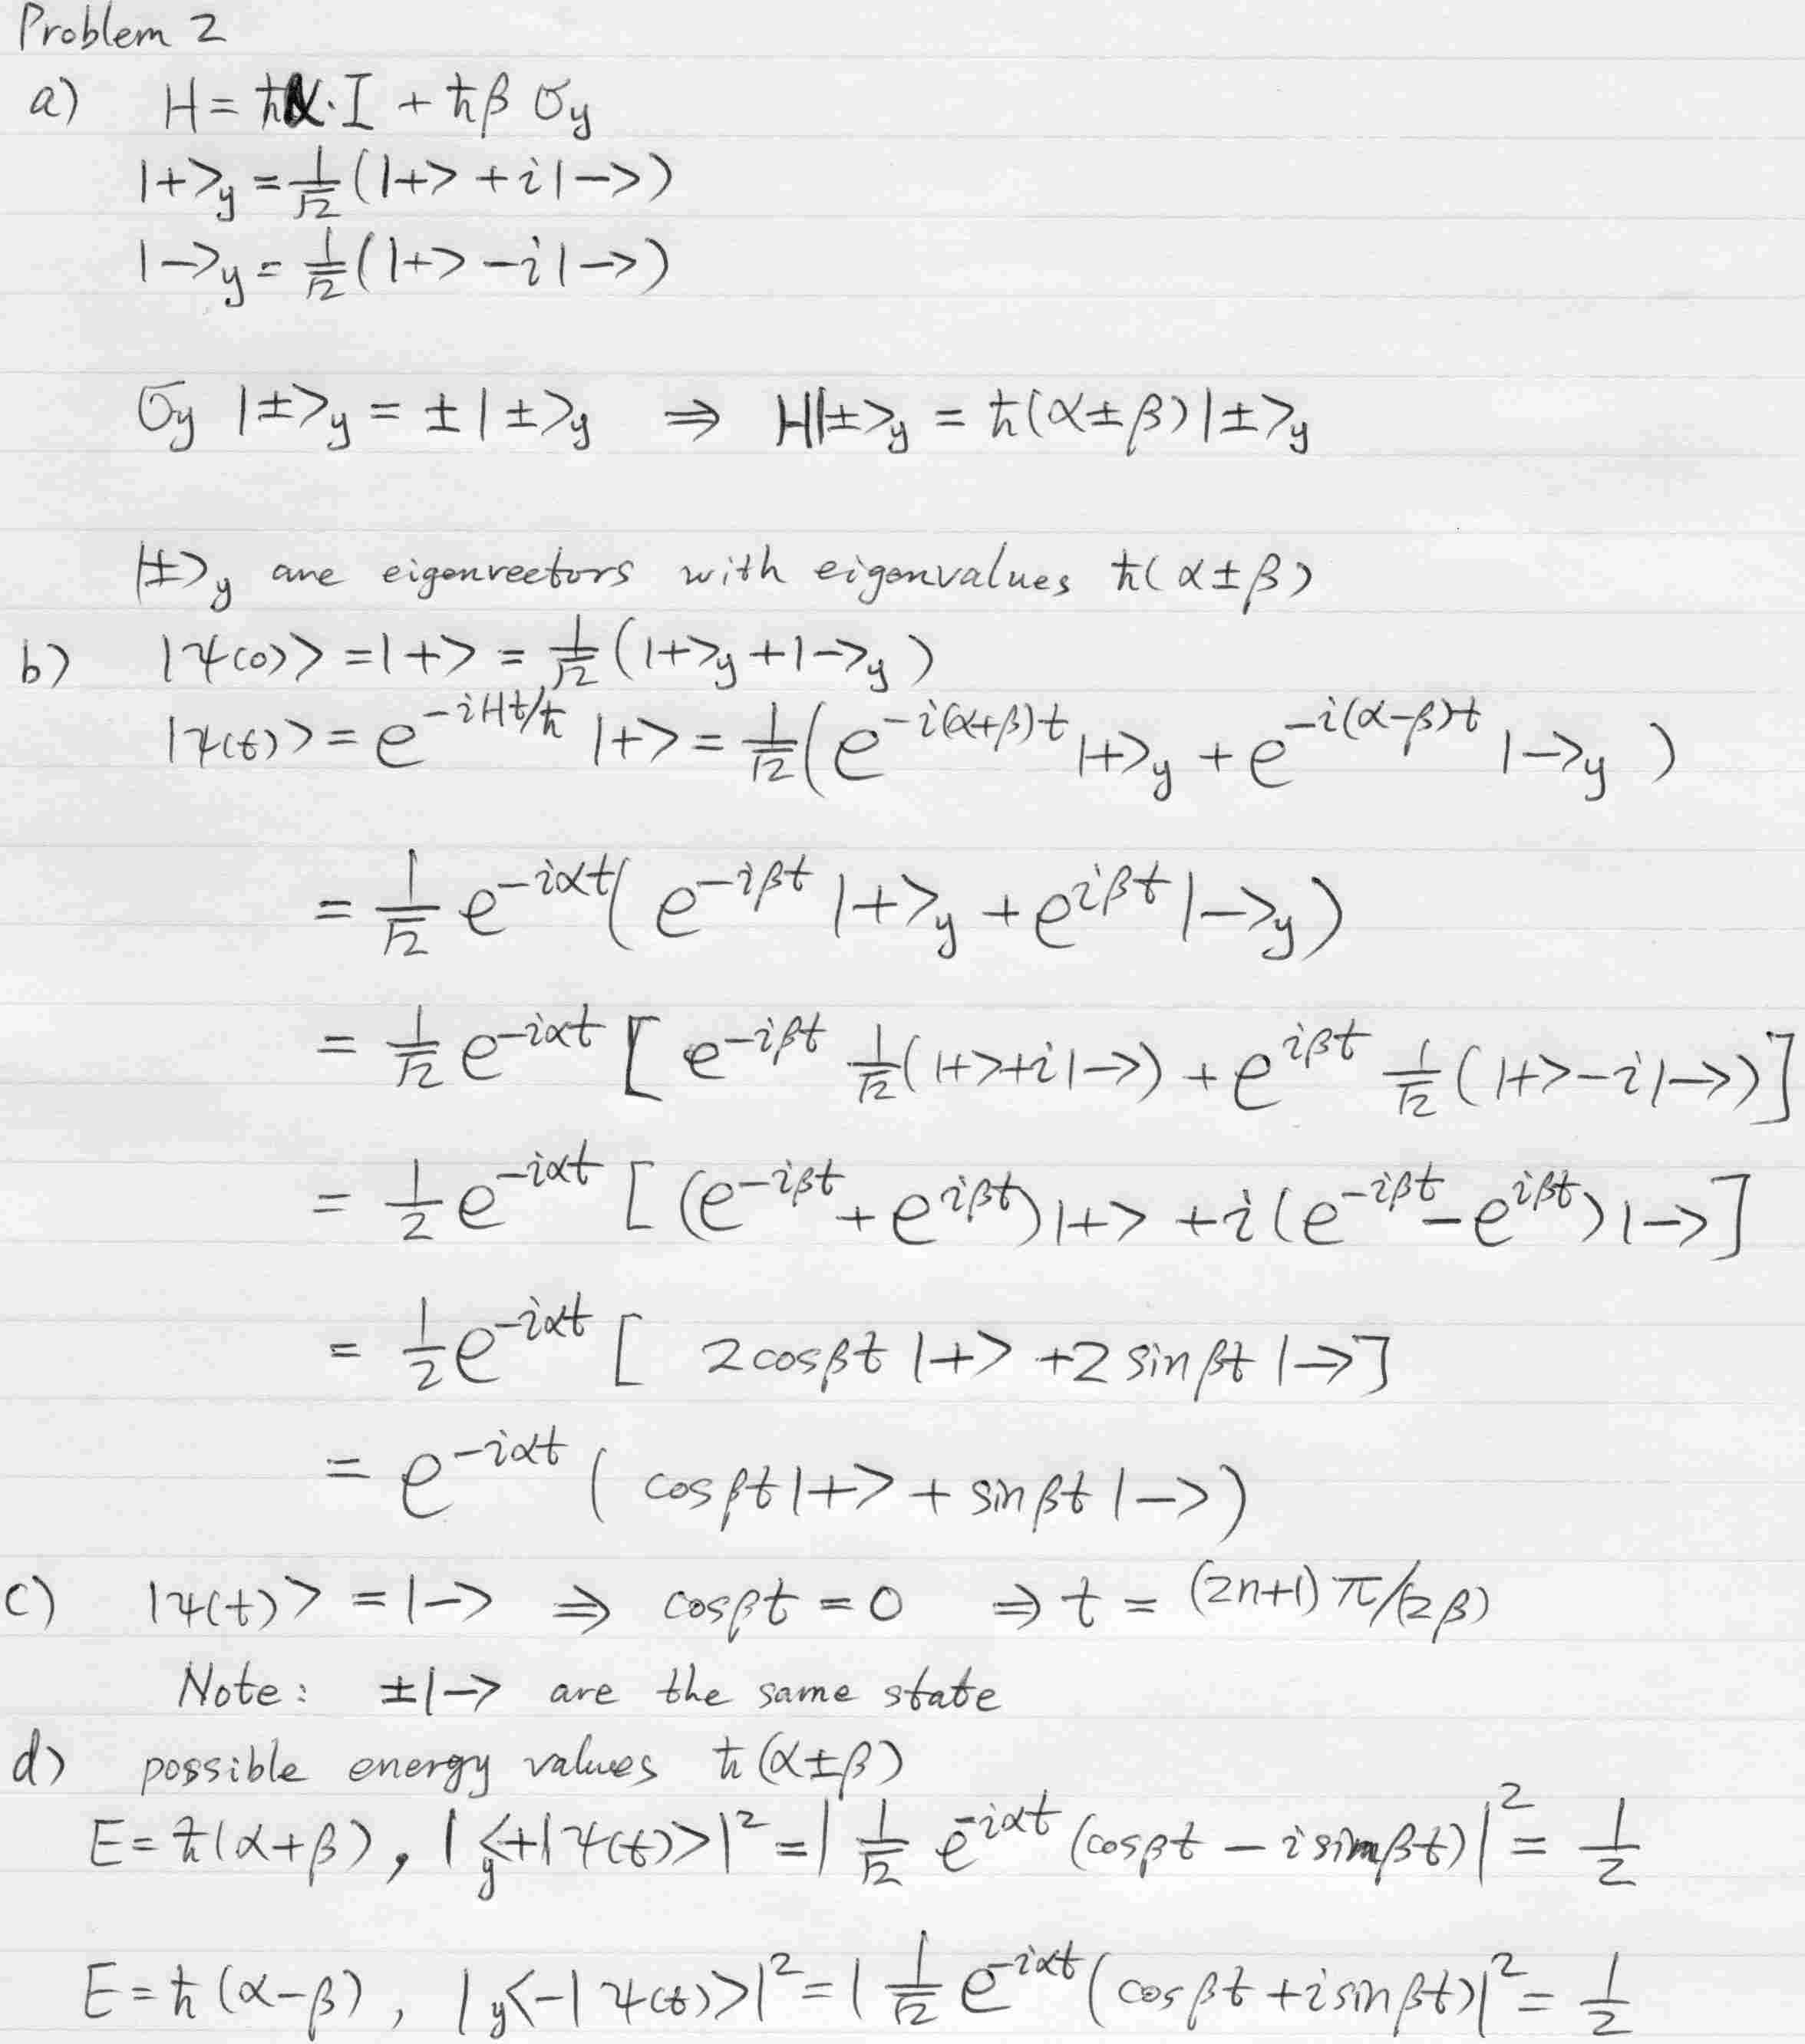 Problem 2
a) H = ħα·I + ħβ σy
|+>y = 1/√2 (|+> + i|->)
|->y = 1/√2 (|+> - i|->)
σy |±>y = ±|±>y ⇒ H|±>y = ħ(α±β)|±>y
|±>y are eigenvectors with eigenvalues ħ(α±β)
b) |ψ(0)> = |+> = 1/√2 (|+>y + |->y)
|ψ(t)> = e^{-iHt/ħ} |+> = 1/√2 (e^{-i(α+β)t} |+>y + e^{-i(α-β)t} |->y)
= 1/√2 e^{-iαt} (e^{-iβt} |+>y + e^{iβt} |->y)
= 1/√2 e^{-iαt} [e^{-iβt} 1/√2 (|+>+i|->) + e^{iβt} 1/√2 (|+>-i|->)]
= 1/2 e^{-iαt} [(e^{-iβt} + e^{iβt})|+> + i(e^{-iβt} - e^{iβt})|->]
= 1/2 e^{-iαt} [2cosβt |+> + 2 sinβt |->]
= e^{-iαt} (cosβt |+> + sinβt |->)
c) |ψ(t)> = |-> ⇒ cosβt = 0 ⇒ t = (2n+1)π/(2β)
Note: ±|-> are the same state
d) possible energy values ħ(α±β)
E = ħ(α+β), |y<+|ψ(t)>|² = |1/√2 e^{-iαt} (cosβt - i sinβt)|² = 1/2
E = ħ(α-β), |y<-|ψ(t)>|² = |1/√2 e^{-iαt} (cosβt + i sinβt)|² = 1/2